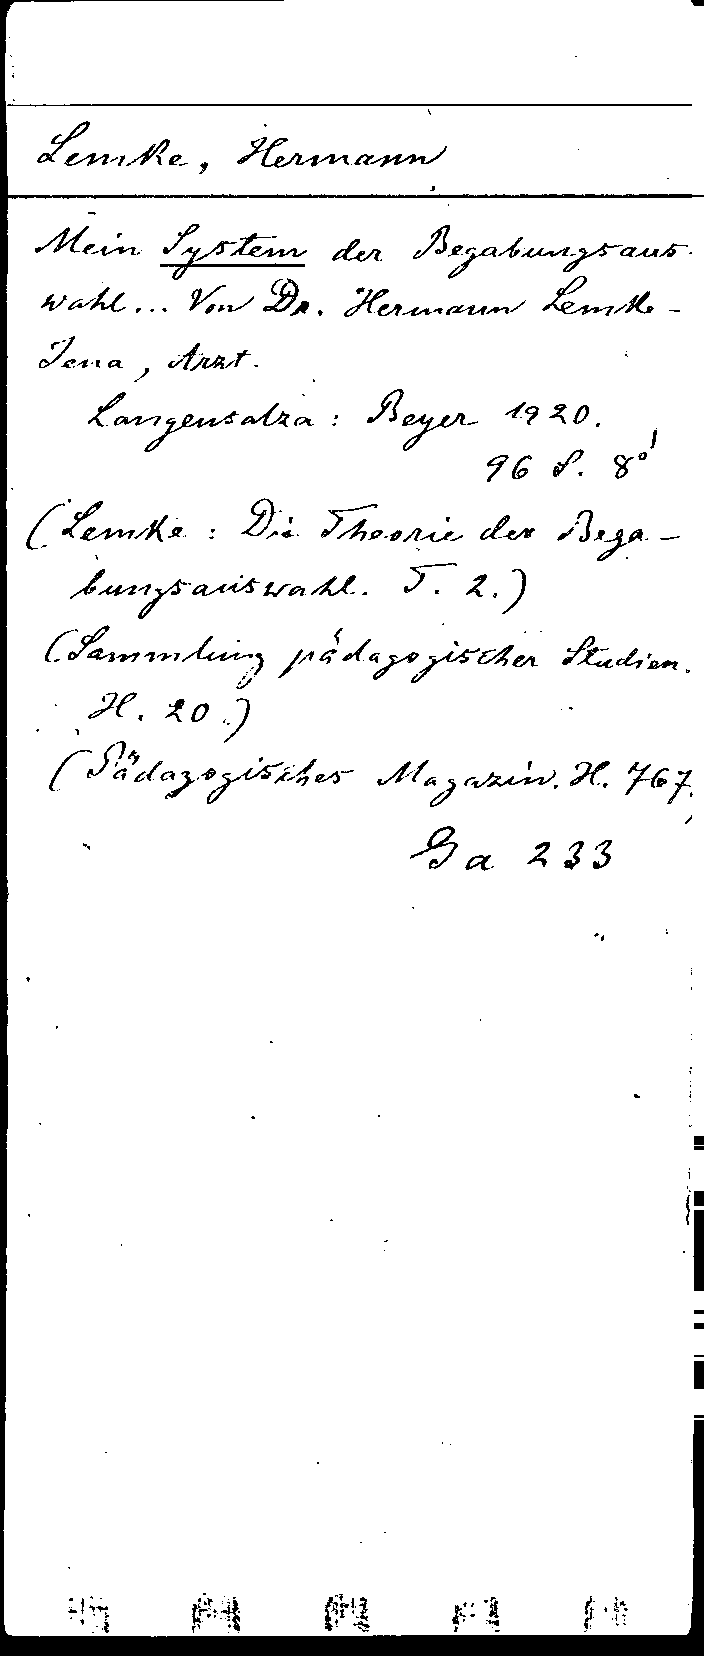 Lemke, Hermann
Mein System der Begabungsaus-
wahl... Von Dr. Hermann Lemke-
Jena, Arzt.
Langensalza: Beyer 1920.
96 S. 8°!
(Lemke: Die Theorie der Bega-
bungsauswahl. T. 2.)
(Sammlung pädagogischer Studien.
H. 20.)
(Pädagogisches Magazin. H. 767.
Ga 233